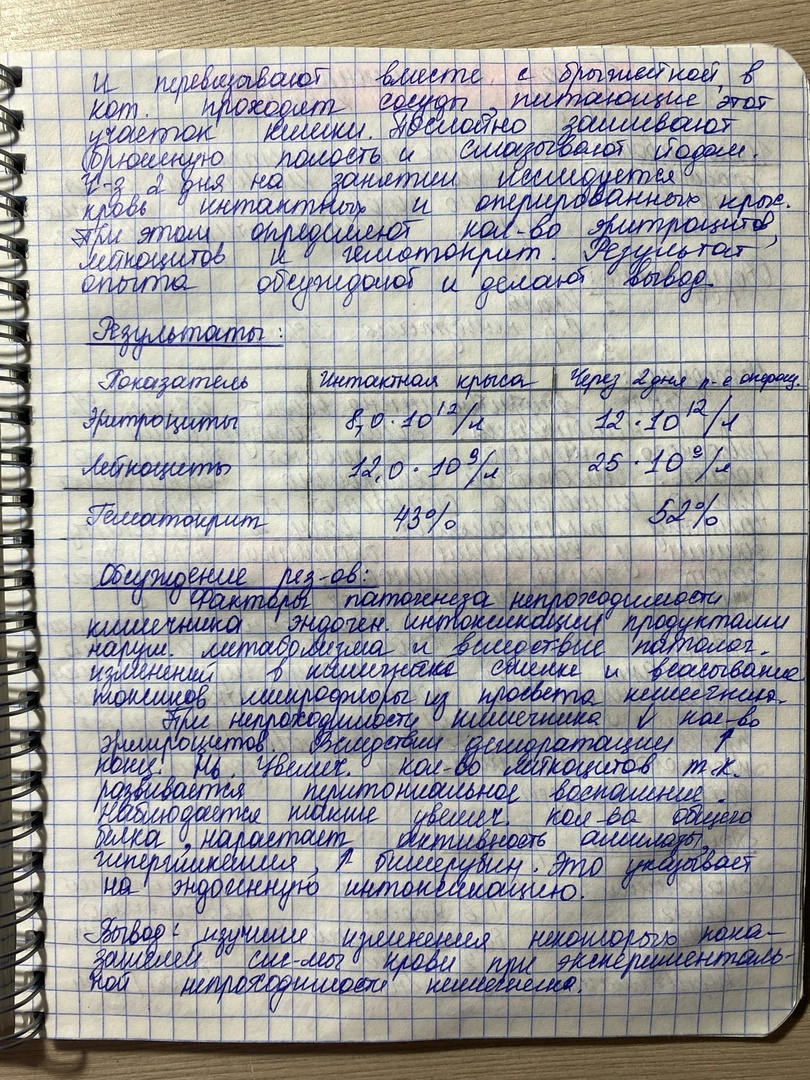 и перевязывают вместе с брыжейкой, в
кот. проходят сосуды, питающие этот
участок кишки. Послойно зашивают
брюшную полость и смазывают йодом.
Ч-з 2 дня на занятии исследуется
кровь интактных и оперированных крыс.
При этом определяют кол-во эритроцитов,
лейкоцитов и гематокрит. Результат
опыта обсуждают и делают вывод.
Результаты:
Показатель Интактная крыса Через 2 дня п-е операц.
Эритроциты 8,0 · 10¹²/л 12 · 10¹²/л
Лейкоциты 12,0 · 10⁹/л 25 · 10⁹/л
Гематокрит 43% 52%
Обсуждение рез-ов:
Факторы патогенеза непроходимости
кишечника эндоген. интоксикация продуктами
наруш. метаболизма и вследствие патолог.
изменений в кишечнике стенке и всасывание
токсинов микрофлоры из просвета кишечника.
При непроходимости кишечника ↓ кол-во
эритроцитов. Вследствии дегидратации ↑
конц. Hb. Увелич. кол-во лейкоцитов т.к.
развивается перитониальное воспаление.
Наблюдается также увелич. кол-ва общего
белка, нарастает активность амилазы,
гипергликемия, ↑ билирубин. Это указывает
на эндогенную интоксикацию.
Вывод: изучили изменения некоторых пока-
зателей сис-мы крови при эксперименталь-
ной непроходимости кишечника.